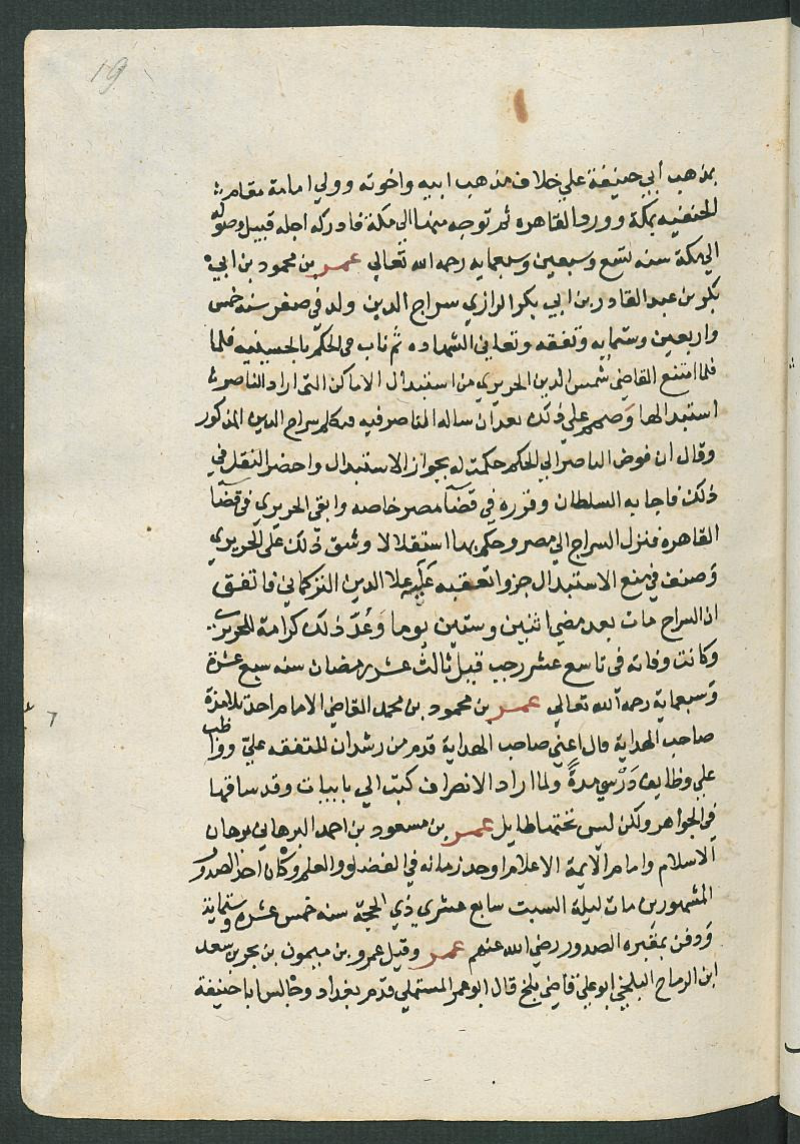 19
بمذهب أبي حنيفة علي خلاف مذهب ابيه واخوته وولي امامة مقام
الحنفيه بمكة وورد القاهره ثم توجه منها الي مكة فادركه اجله قبيل وصوله
الي مكة سنه تسع وسبعين وسبعمايه رحمه الله تعالي عمر بن محمود بن ابي
بكر بن عبد القادر بن ابي بكر الرازي سراج الدين ولد في صفر سنه خمس
واربعين وستمايه وتفقه وتعانى الشهاده ثم ناب في الحكم بالحسينيه فلما
فلما امتنع القاضي شمس الدين الحريري من استبدال الاماكن التي اراد الناصر
استبدالها وصمم علي ذلك بعد ان ساله الناصر فيه فتكلم سراج الدين المذكور
وقال ان فوض الناصر الي الحكم حكمت له بجواز الاستبدال واحضر النقل في
ذلك فاجابه السلطان وقرره في قضآ مصر خاصه وابقى الحريري في قضآ
القاهره فنزل السراج الي مصر وحكم بها استقلالا وشق ذلك علي الحريري
وصنف في منع الاستبدال جزوا تعقبه عليه علا الدين التركماني فاتفق
ان السراج مات بعد مضي اثنين وستين يوما وعُدّ ذلك كرامة للحريري
وكانت وفاته في تاسع عشر رجب قبيل ثالث عشر رمضان سنه سبع عشرة
وسبعماية رحمه الله تعالي عمر بن محمود بن محمد القاضي الامام احد تلامذة
صاحب الهداية قال اعني صاحب الهداية قدم من رشدان للتفقه عليّ وواظب
علي وظايف دَرْسي مدةً ولما اراد الانصراف كتب الي بابيات وقد ساقها
في الجواهر ولكن ليس تحتها طايل عمر بن مسعود بن احمد البرهاني برهان
الاسلام وامام الايمة الاعلام اوحد زمانه في الفضل والعلم وكان احد الصدور
المشهورين مات ليلة السبت سابع عشري ذي الحجة سنه خمس عشره وستماية
ودفن بمقبره الصدور رضي الله عنهم عمر وقيل عمرو بن ميمون بن بحر بن سعد
ابن الرماح البلخي ابو علي قاضي بلخ قال ابو عمر المستملي قدم بغداد وجالس ابا حنيفة